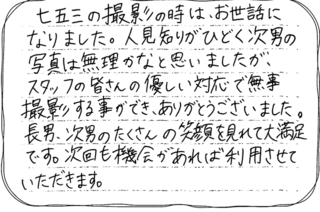 七五三の撮影の時は、お世話に
なりました。人見知りがひどく次男の
写真は無理かなと思いましたが、
スタッフの皆さんの優しい対応で無事
撮影する事ができ、ありがとうございました。
長男、次男のたくさんの笑顔を見れて大満足
です。次回も機会があれば利用させて
いただきます。